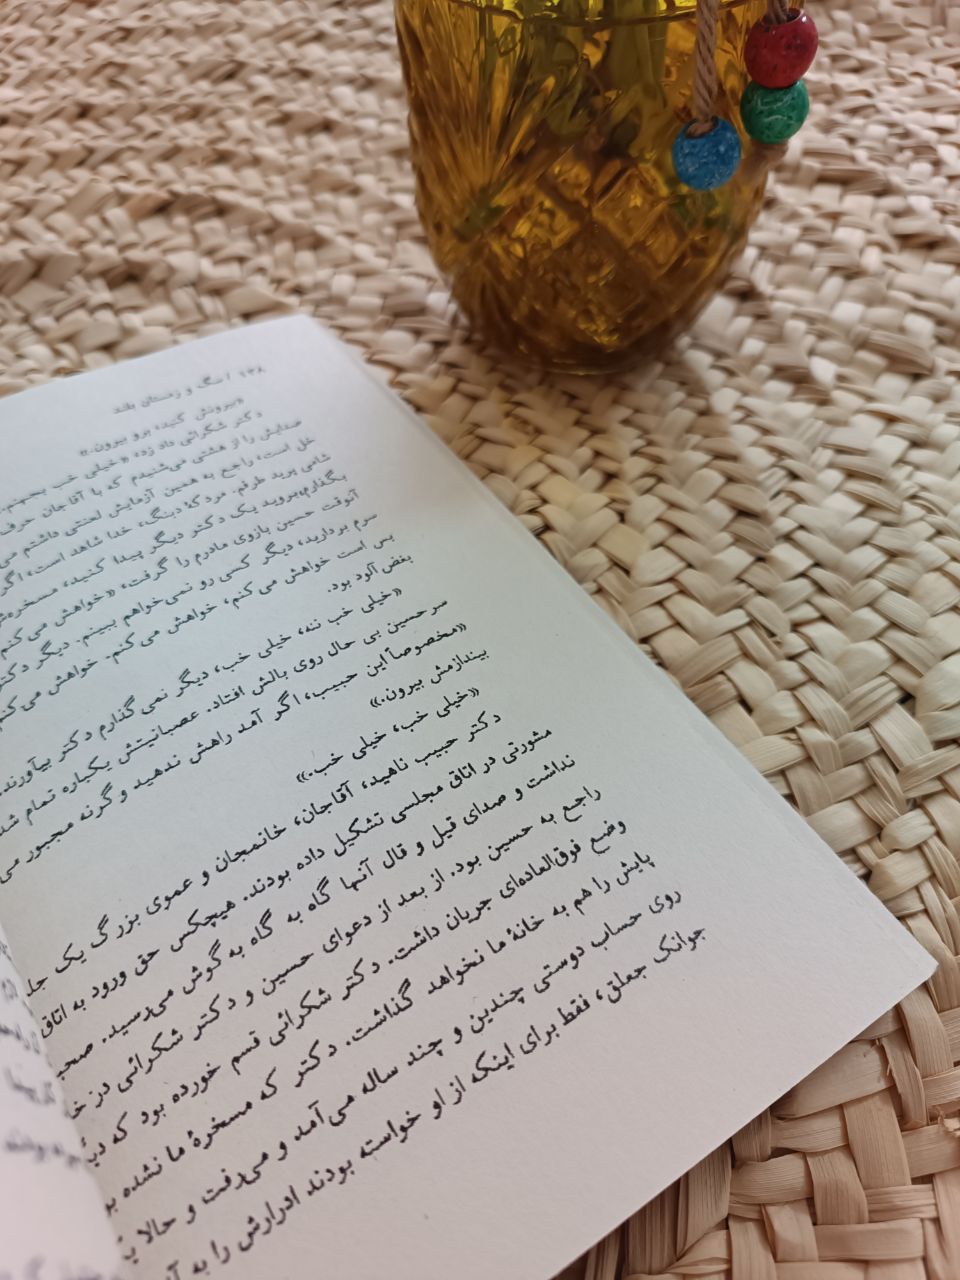 ۲۳۸ / سگ و زمستان بلند
«بیرونش کنید، برو بیرون.»
دکتر شکرائی داد زد: «خیلی خب بچهم.
صدایش را از هشتی می‌شنیدم که با آقاجان حرف
خل است، راجع به همین آزمایش لعنتی داشتم می
شاشی پرید طرفم. مردکهٔ دبنگ، خدا شاهد است، اگر
بگذارم، بروید یک دکتر دیگر پیدا کنید، مسخره‌ش
آنوقت حسین بازوی مادرم را گرفت، «خواهش می‌کنم
سرم بردارید، دیگر کسی رو نمی‌خواهم ببینم. دیگر دکتر
بس است خواهش می کنم، خواهش می‌کنم. خواهش می‌کنم
بغض آلود بود.
«خیلی خب ننه، خیلی خب، دیگر نمی گذارم دکتر بیآورند.
سر حسین بی حال روی بالش افتاد. عصبانیتش یکباره تمام شد
«مخصوصاً این حبیب، اگر آمد راهش ندهید و گرنه مجبور می
بیندازمش بیرون.»
«خیلی خب، خیلی خب.»
دکتر حبیب ناهید، آقاجان، خانمجان و عموی بزرگ یک جل
مشورتی در اتاق مجلسی تشکیل داده بودند. هیچکس حق ورود به اتاق
نداشت و صدای قیل و قال آنها گاه به گاه به گوش می‌رسید. صحب
راجع به حسین بود. از بعد از دعوای حسین و دکتر شکرائی در خا
وضع فوق‌العاده‌ای جریان داشت. دکتر شکرائی قسم خورده بود که دیگ
پایش را هم به خانهٔ ما نخواهد گذاشت. دکتر که مسخرهٔ ما نشده بو
روی حساب دوستی چندین و چند ساله می‌آمد و می‌رفت و حالا یک
جوانک جعلق، فقط برای اینکه از او خواسته بودند ادرارش را به آز